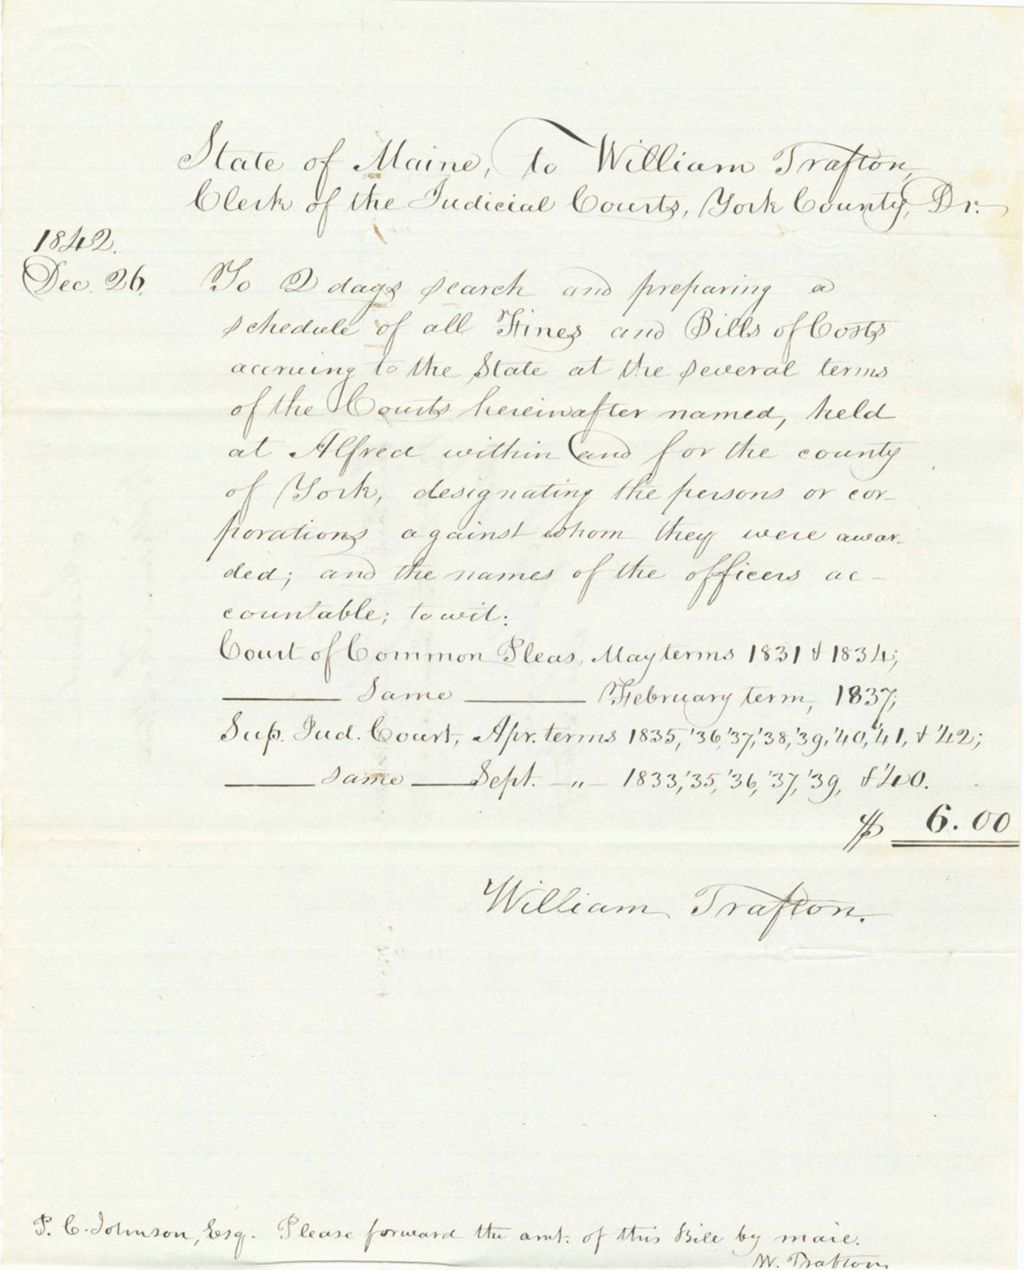 State of Maine, to William Trafton,
Clerk of the Judicial Courts, York County, Dr.
1842.
Dec. 26. To 2 days search and preparing a
schedule of all Fines and Bills of Costs
accruing to the State at the several terms
of the Courts hereinafter named, held
at Alfred within and for the county
of York, designating the persons or cor-
porations against whom they were awar-
ded; and the names of the officers ac-
countable; to wit:
Court of Common Pleas, May terms 1831 & 1834;
—— Same —— February term, 1837;
Sup. Jud. Court, Apr. terms 1835, '36, '37, '38, '39, '40, '41, & '42;
—— same —— Sept. — " — 1833, '35, '36, '37, '39, & '40.
$ 6.00
William Trafton.
P. C. Johnson, Esq. Please forward the amt. of this Bill by mail.
W. Trafton